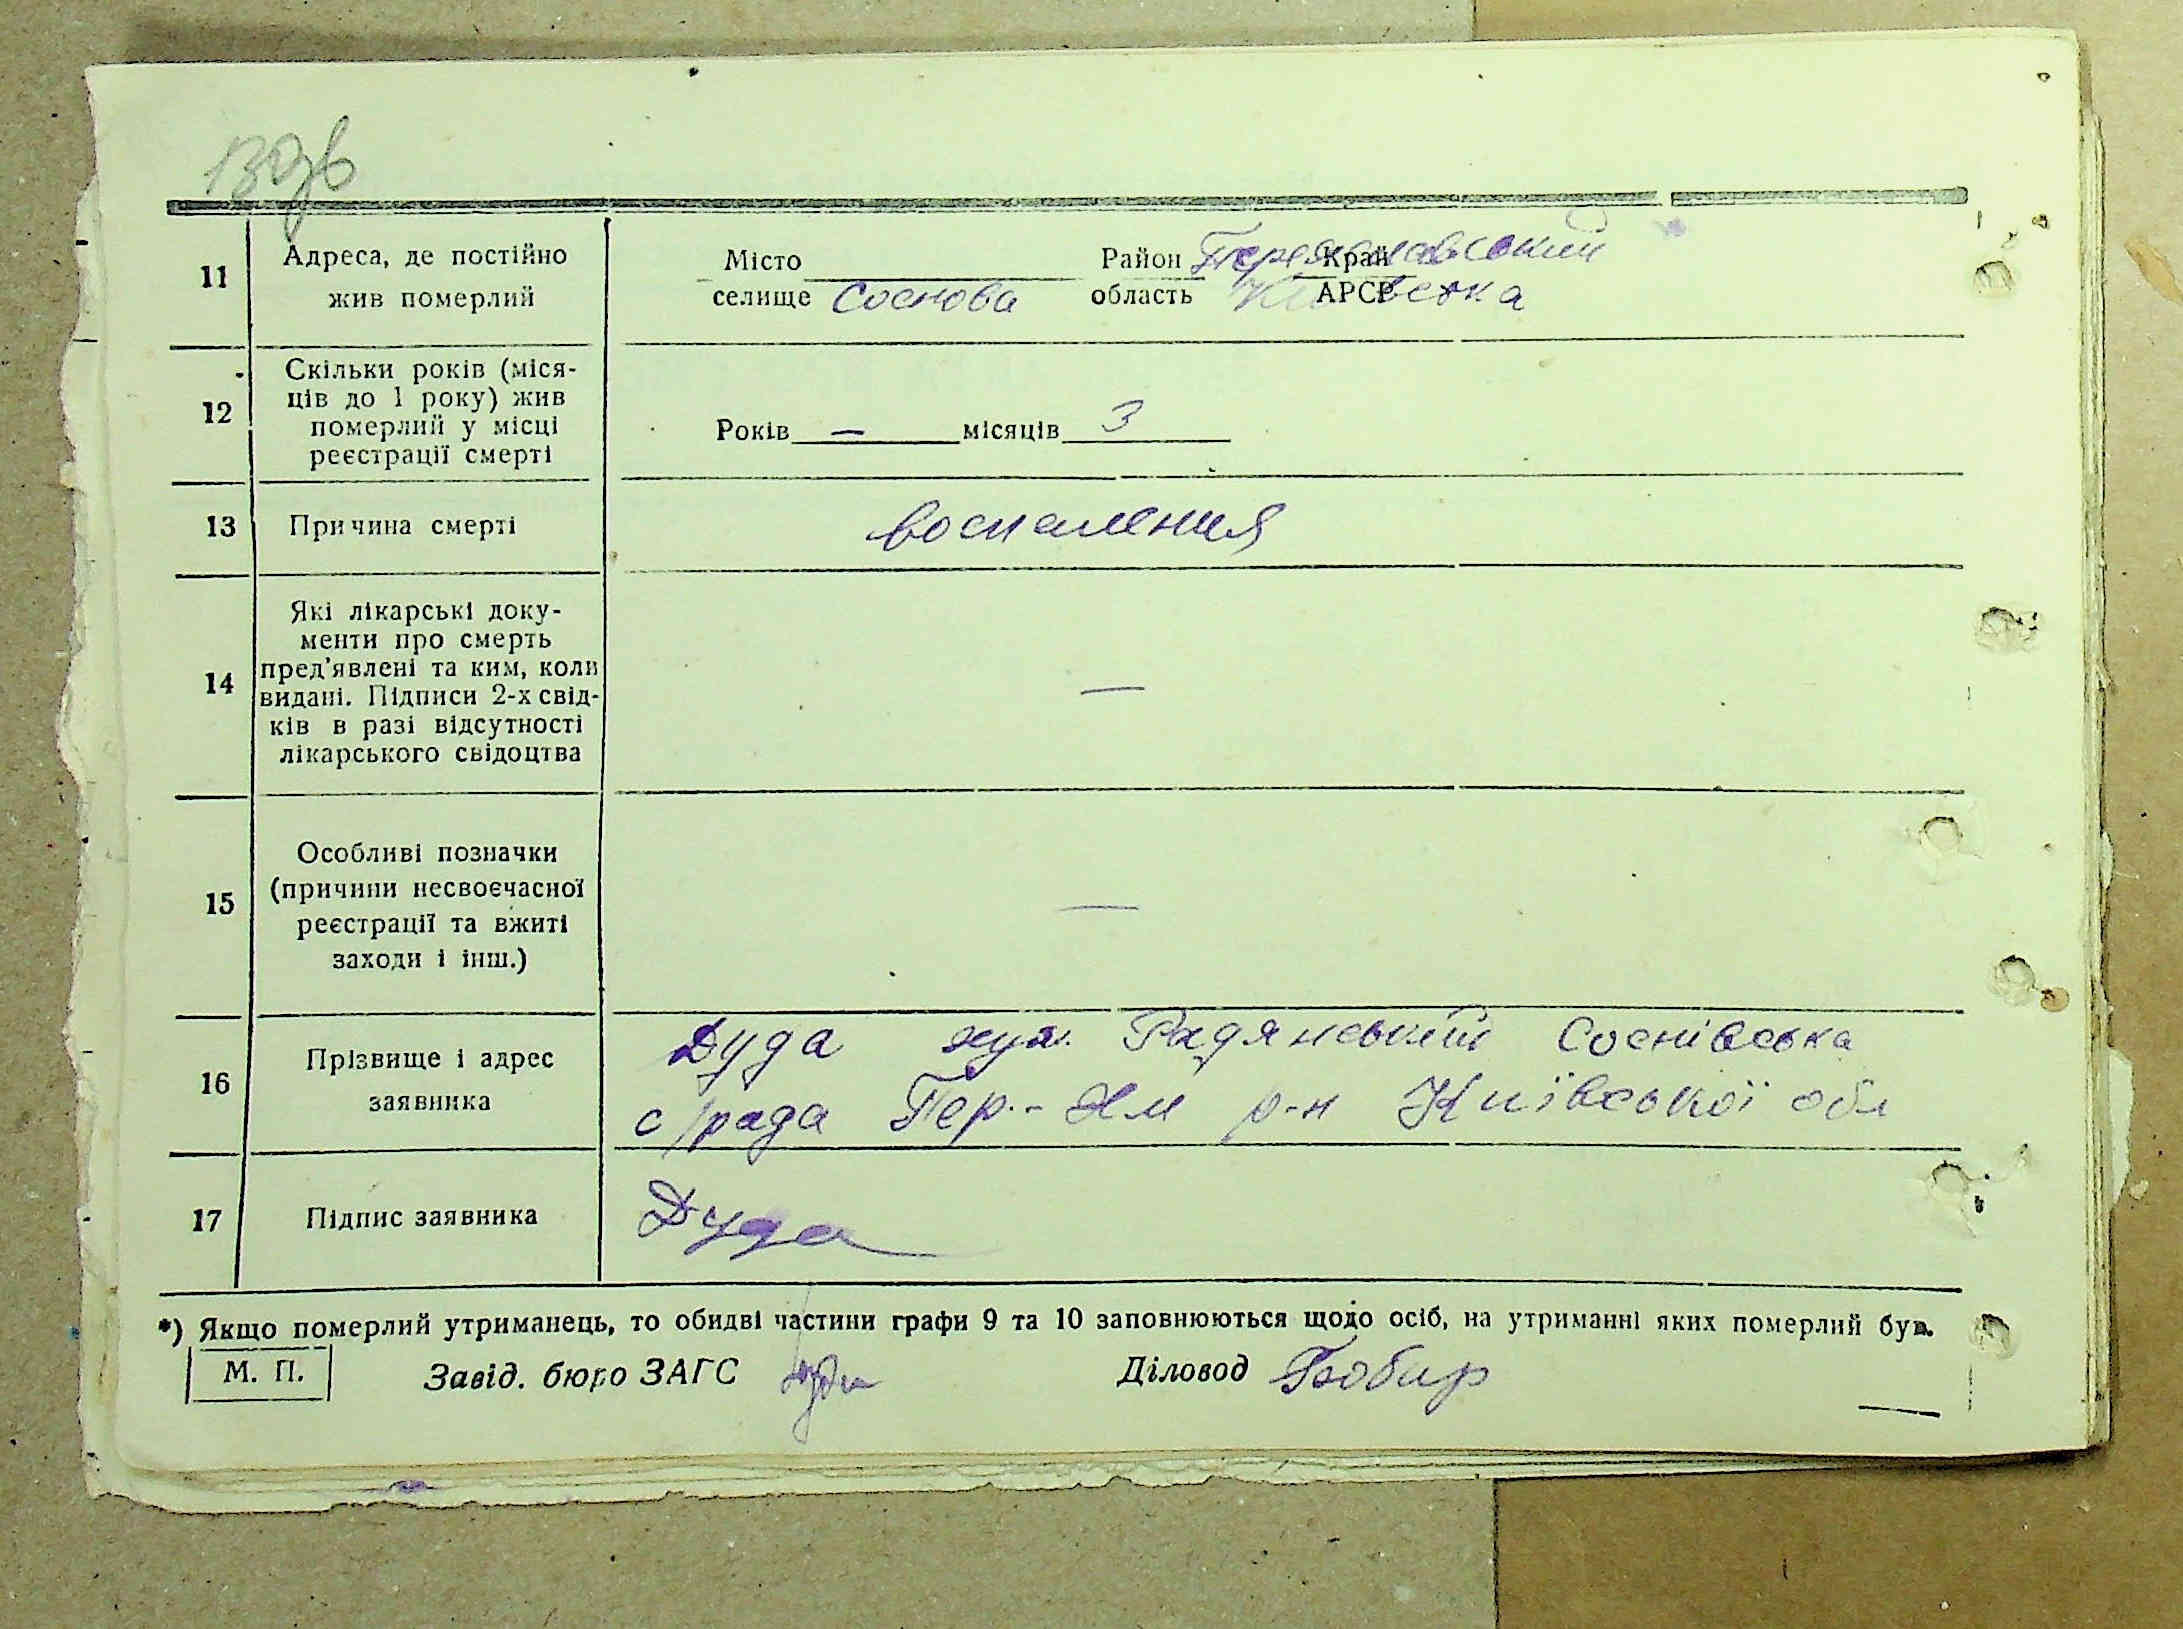 130зв
11 Адреса, де постійно жив померлий
Місто Район Переяславський Край
селище Соснова область Київська АРСР
12 Скільки років (міся-
ців до 1 року) жив
померлий у місці
реєстрації смерті
Років — місяців 3
13 Причина смерті воспаления
14 Які лікарські доку-
менти про смерть
пред'явлені та ким, коли
видані. Підписи 2-х свід-
ків в разі відсутності
лікарського свідоцтва
—
15 Особливі позначки
(причини несвоєчасної
реєстрації та вжиті
заходи і інш.)
—
16 Прізвище і адрес
заявника
Дуда хут. Радянський Соснівська
с/рада Пер.-Хм р-н Київської обл
17 Підпис заявника Дуда
*) Якщо померлий утриманець, то обидві частини графи 9 та 10 заповнюються щодо осіб, на утриманні яких померлий був.
М. П. Завід. бюро ЗАГС Діловод Бобир